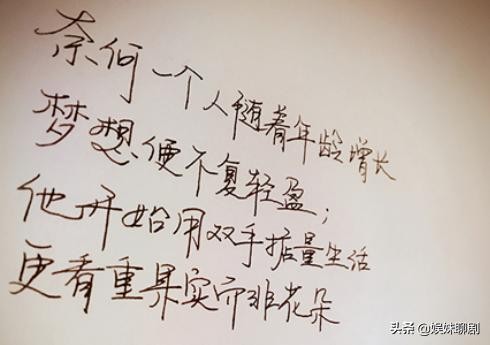 奈何一个人随着年龄增长
梦想便不复轻盈；
他开始用双手掂量生活
更看重果实而非花朵
头条 @娱妹聊剧